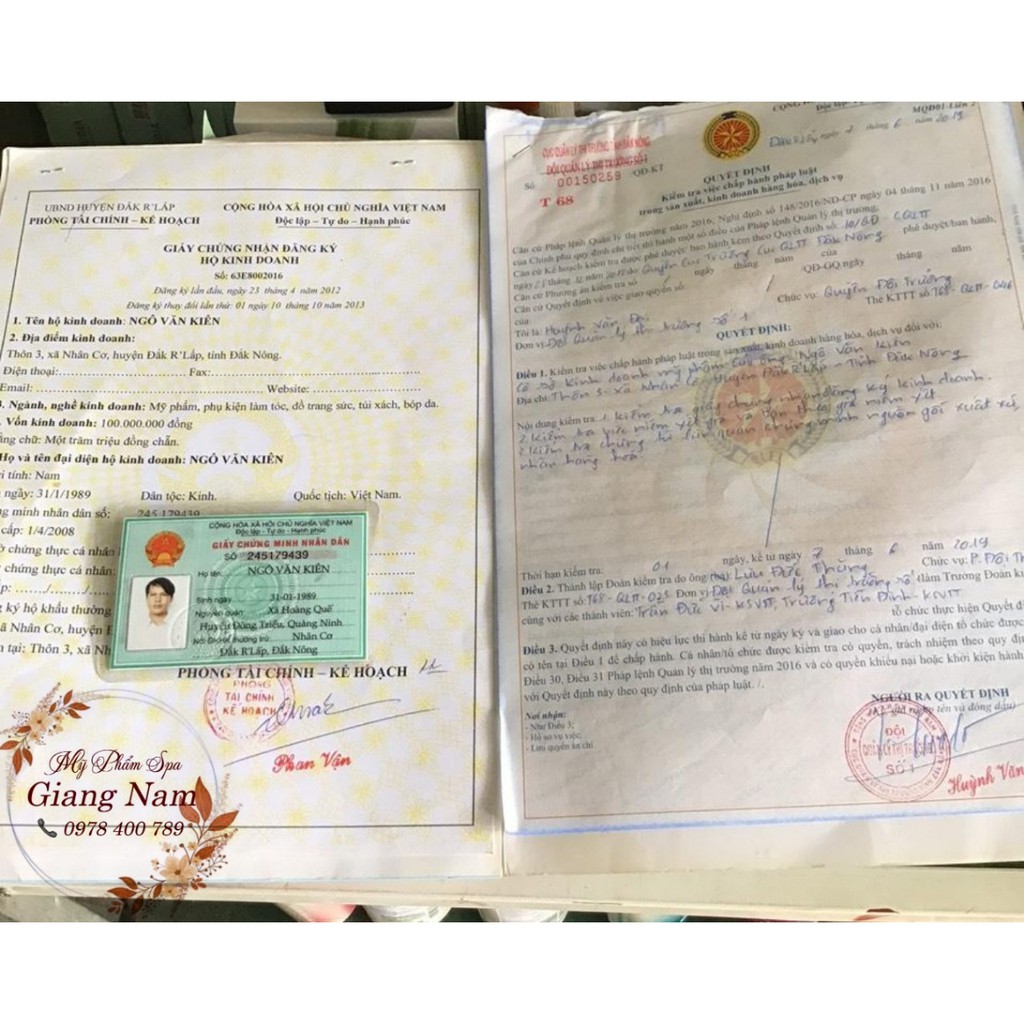 UBND HUYỆN ĐẮK R'LẤP
PHÒNG TÀI CHÍNH – KẾ HOẠCH
CỘNG HÒA XÃ HỘI CHỦ NGHĨA VIỆT NAM
Độc lập – Tự do – Hạnh phúc
GIẤY CHỨNG NHẬN ĐĂNG KÝ
HỘ KINH DOANH
Số: 63E8002016
Đăng ký lần đầu, ngày 23 tháng 4 năm 2012
Đăng ký thay đổi lần thứ: 01 ngày 10 tháng 10 năm 2013
1. Tên hộ kinh doanh: NGÔ VĂN KIÊN
2. Địa điểm kinh doanh:
Thôn 3, xã Nhân Cơ, huyện Đắk R'Lấp, tỉnh Đắk Nông.
Điện thoại: Fax:
Email: Website:
3. Ngành, nghề kinh doanh: Mỹ phẩm, phụ kiện làm tóc, đồ trang sức, túi xách, bóp da.
. Vốn kinh doanh: 100.000.000 đồng
chữ: Một trăm triệu đồng chẵn.
Họ và tên đại diện hộ kinh doanh: NGÔ VĂN KIÊN
tính: Nam
ngày: 31/1/1989 Dân tộc: Kinh. Quốc tịch: Việt Nam.
minh nhân dân số: 245179439
cấp: 1/4/2008
chứng thực cá nhân
chứng thực cá nhân
cấp:
ký hộ khẩu thường
Nhân Cơ, huyện
tại: Thôn 3, xã
CỘNG HÒA XÃ HỘI CHỦ NGHĨA VIỆT NAM
Độc lập - Tự do - Hạnh phúc
GIẤY CHỨNG MINH NHÂN DÂN
SỐ 245179439
Họ tên NGÔ VĂN KIÊN
Sinh ngày 31-01-1989
Nguyên quán Xã Hoàng Quế
Huyện Đông Triều, Quảng Ninh
Nơi ĐKHK thường trú Nhân Cơ
Đắk R'Lấp, Đắk Nông
PHÒNG TÀI CHÍNH – KẾ HOẠCH
PHÒNG
TÀI CHÍNH
KẾ HOẠCH
Phan Vận
Mỹ Phẩm Spa
Giang Nam
0978 400 789
MQĐ01-Liên 2
CỤC QUẢN LÝ THỊ TRƯỜNG TỈNH ĐẮK NÔNG
ĐỘI QUẢN LÝ THỊ TRƯỜNG SỐ 1
Số 00150259 /QĐ-KT
T 68
ngày 7 tháng 6 năm 2019
QUYẾT ĐỊNH
Kiểm tra việc chấp hành pháp luật
trong sản xuất, kinh doanh hàng hóa, dịch vụ
Căn cứ Pháp lệnh Quản lý thị trường năm 2016, Nghị định số 148/2016/NĐ-CP ngày 04 tháng 11 năm 2016
của Chính phủ quy định chi tiết thi hành một số điều của Pháp lệnh Quản lý thị trường;
Căn cứ Kế hoạch kiểm tra được phê duyệt/ban hành kèm theo Quyết định số: phê duyệt/ban hành,
Căn cứ Phương án kiểm tra số ngày tháng năm
Căn cứ Quyết định về việc giao quyền số: /QĐ-GQ ngày tháng năm
của
Tôi là: Huỳnh Văn Chức vụ: Quyền Đội Trưởng
Đơn vị: Đội Quản lý thị trường số 1 Thẻ KTTT số: T68-QLTT-046
QUYẾT ĐỊNH:
Điều 1. Kiểm tra việc chấp hành pháp luật trong sản xuất, kinh doanh hàng hóa, dịch vụ đối với:
Cơ sở kinh doanh mỹ phẩm của ông Ngô Văn Kiên
Địa chỉ: Thôn 3 - xã Nhân Cơ - Huyện Đắk R'Lấp - Tỉnh Đắk Nông
Nội dung kiểm tra: 1. Kiểm tra giấy chứng nhận đăng ký kinh doanh.
2. Kiểm tra việc niêm yết giá và bán theo giá niêm yết
2. Kiểm tra chứng từ liên quan chứng minh nguồn gốc xuất xứ,
nhãn hàng hóa.
Thời hạn kiểm tra: 01 ngày, kể từ ngày 7 tháng 6 năm 2019
Điều 2. Thành lập Đoàn kiểm tra do ông (bà) Lưu Đức Thùng Chức vụ: P.Đội
Thẻ KTTT số: T68-QLTT-025 Đơn vị: Đội Quản lý thị trường số 1 (làm Trưởng Đoàn
cùng với các thành viên: Trần Đức Vi-KSVTT, Trương Tiến Đình-KSVTT
tổ chức thực hiện Quyết
Điều 3. Quyết định này có hiệu lực thi hành kể từ ngày ký và giao cho cá nhân/đại diện tổ chức được
có tên tại Điều 1 để chấp hành. Cá nhân/tổ chức được kiểm tra có quyền, trách nhiệm theo quy
Điều 30, Điều 31 Pháp lệnh Quản lý thị trường năm 2016 và có quyền khiếu nại hoặc khởi kiện hành
với Quyết định này theo quy định của pháp luật. /.
Nơi nhận:
- Như Điều 3;
- Hồ sơ vụ việc;
- Lưu quyển ấn chỉ
NGƯỜI RA QUYẾT ĐỊNH
tên và đóng dấu)
ĐỘI
QUẢN LÝ THỊ TRƯỜNG
SỐ 1
Huỳnh Văn